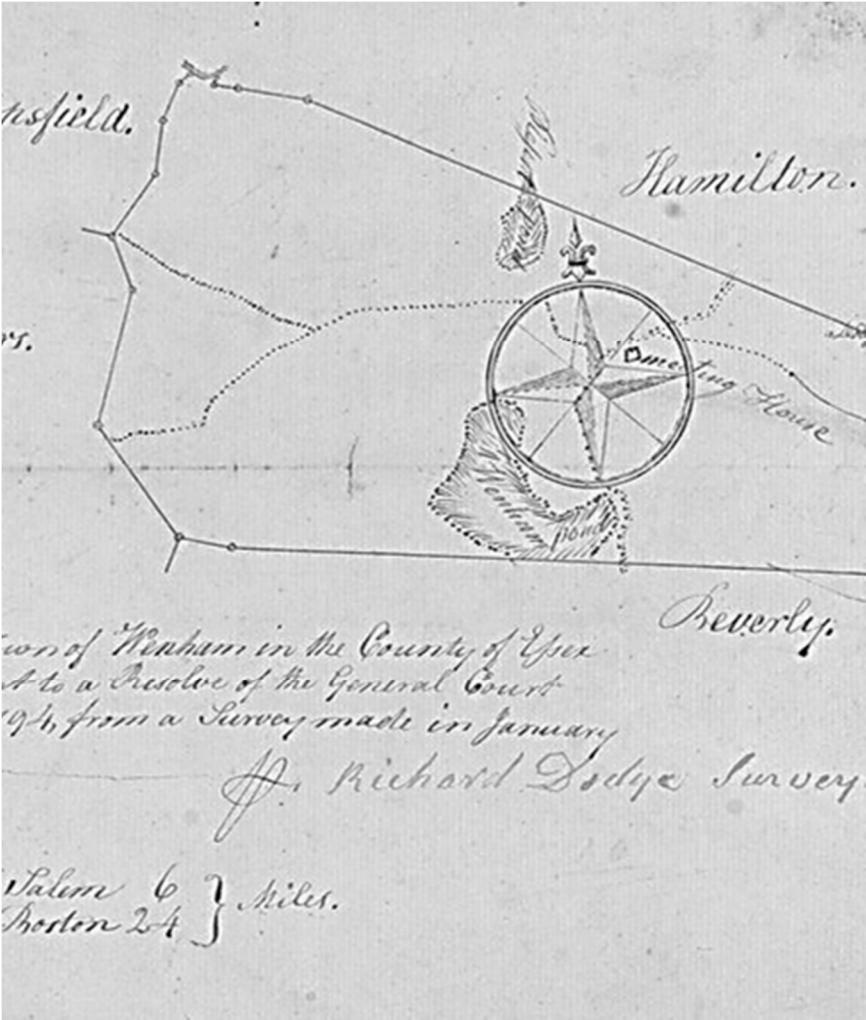 nsfield.
Hamilton.
rs.
meeting House
Wenham
pond
Beverly.
own of Wenham in the County of Essex
t to a Resolve of the General Court
94, from a Survey made in January
Richard Dodge Survey
Salem 6
Boston 24
} Miles.